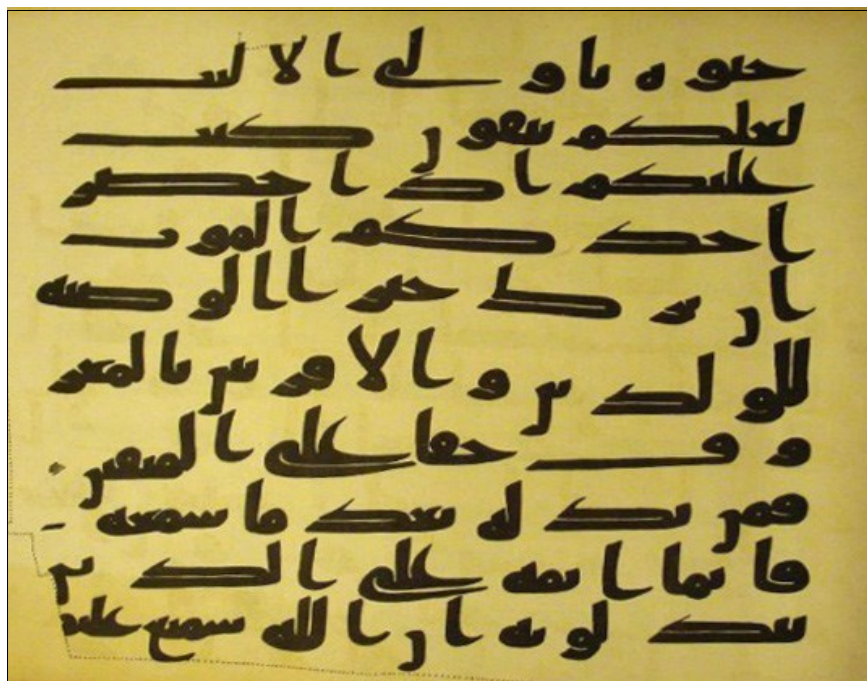 حيوة ياولى الالبب
لعلكم تتقون كتب
عليكم اذا حضر
احدكم الموت
ان ترك خيرا الوصية
للولدين والاقربين بالمعر
وف حقا على المتقين
فمن بدله بعد ما سمعه
فانما اثمه على الذين
يبدلونه ان الله سميع عليم